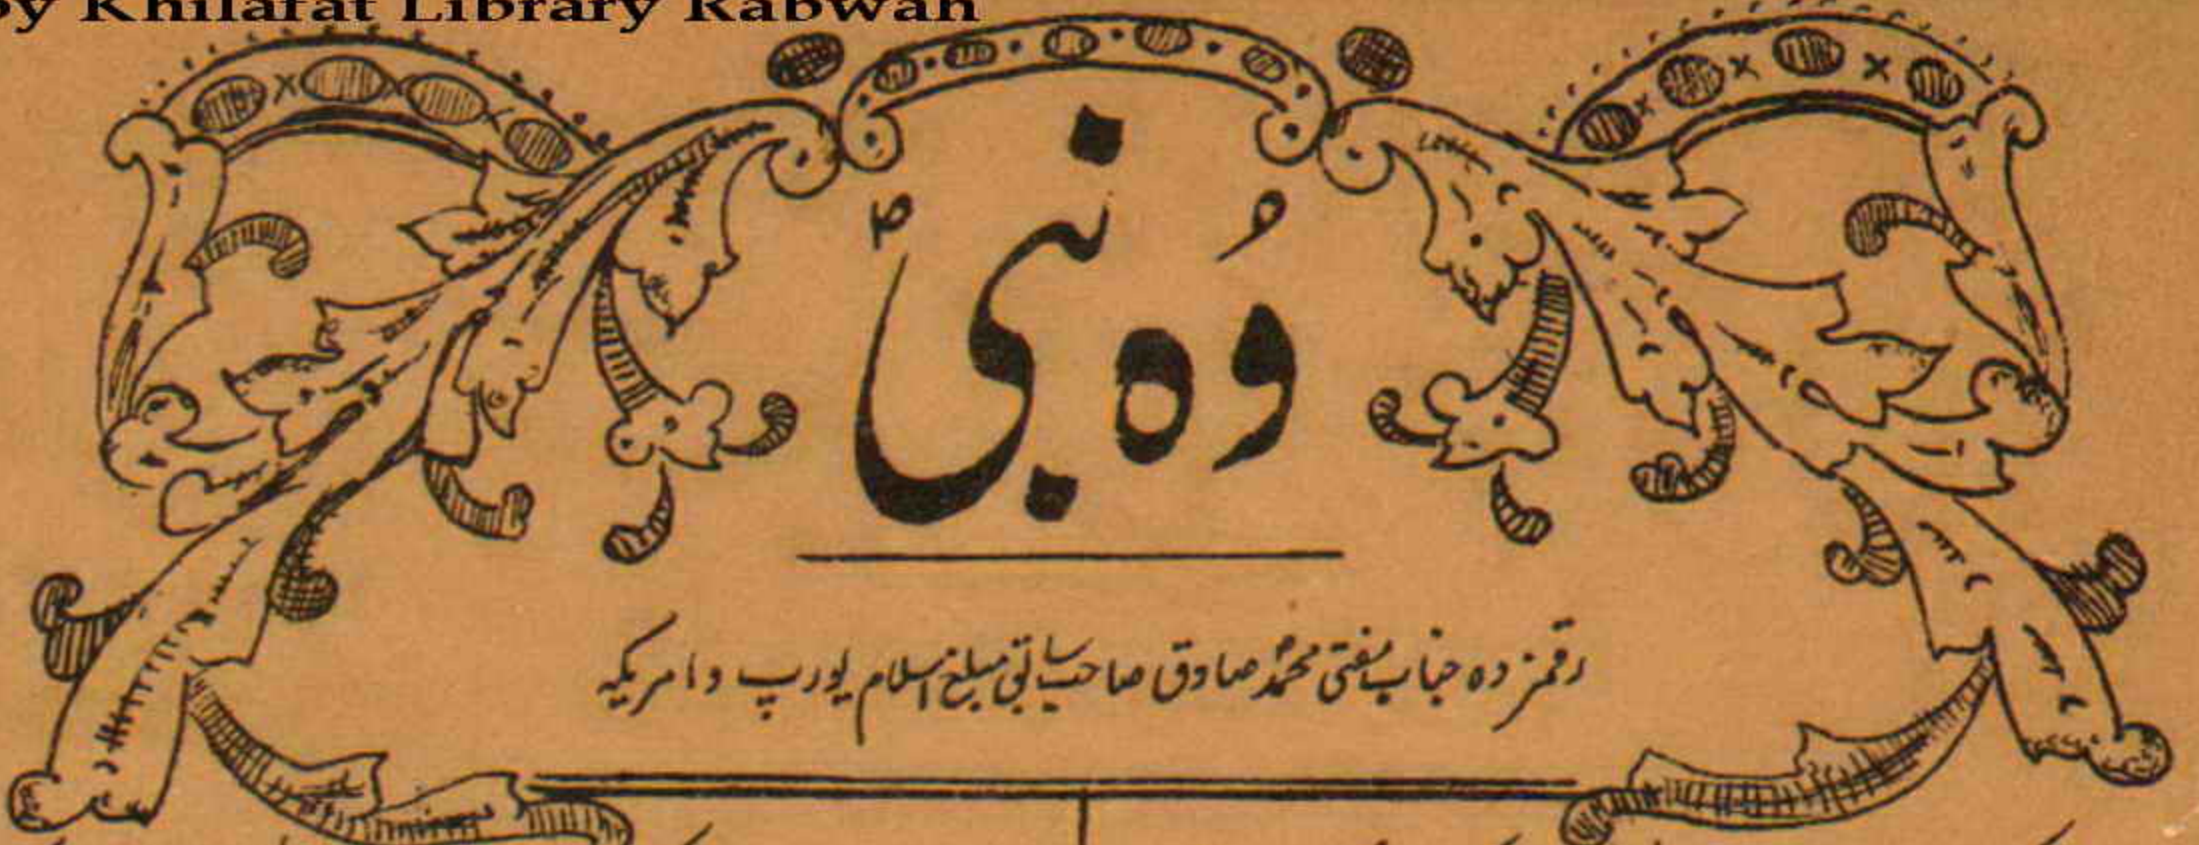 by Khilafat Library Rabwah
وُہ نبیؐ
رقمزدہ جناب مفتی محمدؐ صادق صاحب سابق مبلغ اسلام یورپ و امریکہ